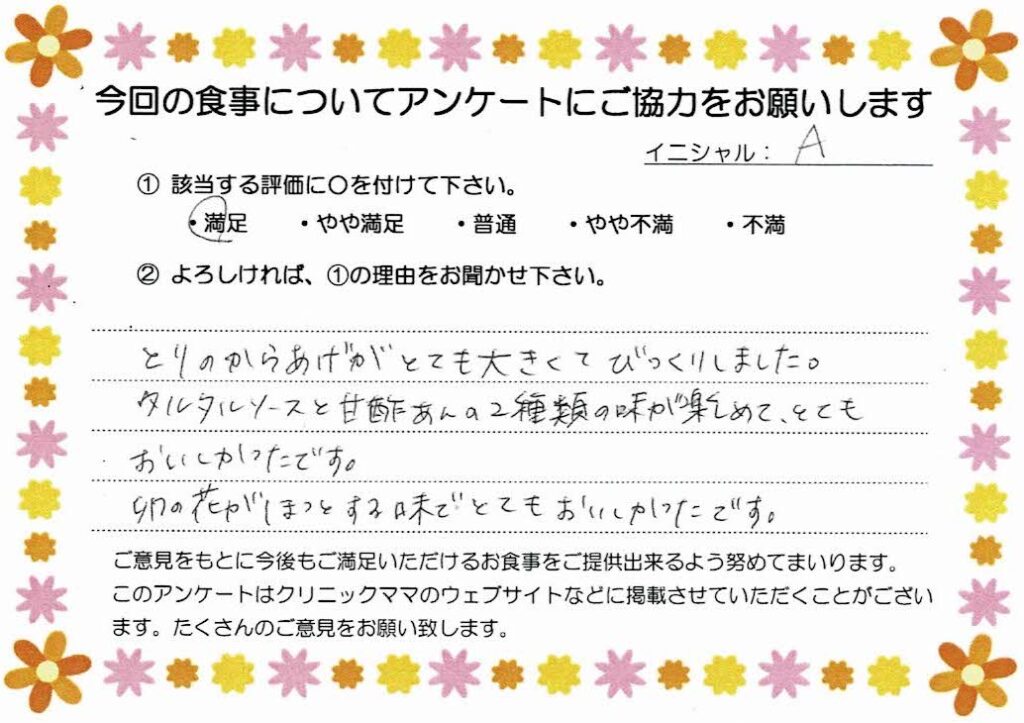 今回の食事についてアンケートにご協力をお願いします
イニシャル： A
① 該当する評価に〇を付けて下さい。
・満足 ・やや満足 ・普通 ・やや不満 ・不満
② よろしければ、①の理由をお聞かせ下さい。
とりのからあげがとても大きくてびっくりしました。
タルタルソースと甘酢あんの2種類の味が楽しめて、とても
おいしかったです。
卯の花がほっとする味でとてもおいしかったです。
ご意見をもとに今後もご満足いただけるお食事をご提供出来るよう努めてまいります。
このアンケートはクリニックママのウェブサイトなどに掲載させていただくことがござい
ます。たくさんのご意見をお願い致します。